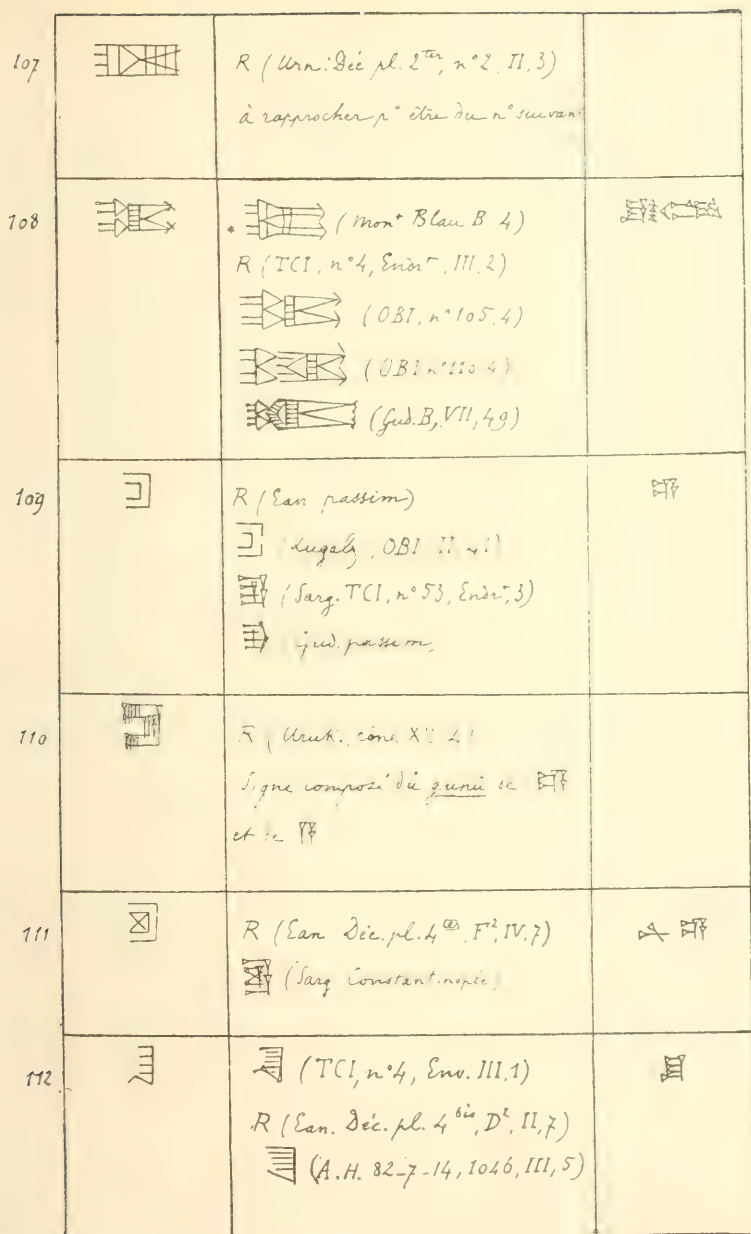 107 R (Urn: Déc pl. 2ter, n° 2, II, 3)
à rapprocher pt être du n° suivant
108 * (mont Blau B 4)
R (TCI, n° 4, Endrt, III, 2)
(OBI, n° 105, 4)
(OBI n° 110 4)
(Gud. B, VII, 49)
109 R (Ean passim)
OBI II
(Sarg. TCI, n° 53, Endrt, 3)
gud. passim,
110 Uruk. cone
Signe composé du gunu de
et de
111 R (Ean Déc. pl. 4 F², IV, 7)
(Sarg Constantinople)
112 (TCI, n° 4, Env. III, 1)
R (Ean. Déc. pl. 4bis, D², II, 7)
(A.H. 82-7-14, 1046, III, 5)